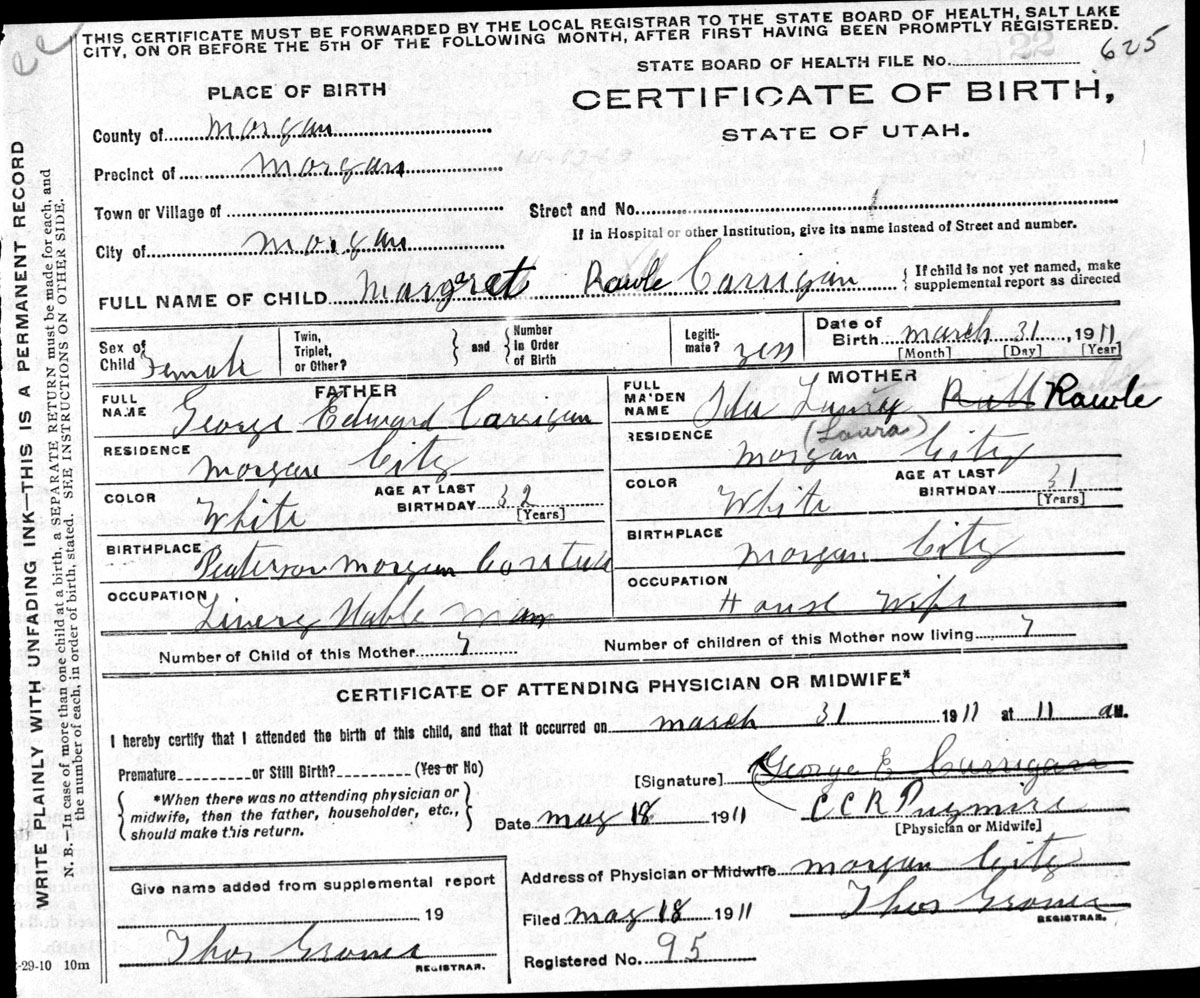 THIS CERTIFICATE MUST BE FORWARDED BY THE LOCAL REGISTRAR TO THE STATE BOARD OF HEALTH, SALT LAKE
CITY, ON OR BEFORE THE 5TH OF THE FOLLOWING MONTH, AFTER FIRST HAVING BEEN PROMPTLY REGISTERED.
22 625
STATE BOARD OF HEALTH FILE No.
PLACE OF BIRTH
CERTIFICATE OF BIRTH,
STATE OF UTAH.
County of Morgan
Precinct of Morgan
Town or Village of
Street and No.
City of Morgan
If in Hospital or other Institution, give its name instead of Street and number.
FULL NAME OF CHILD Margret Rawle Carrigan { If child is not yet named, make
supplemental report as directed
Sex of
Child Female
Twin,
Triplet,
or Other?
} and {
Number
in Order
of Birth
Legiti-
mate? yess
Date of
Birth March 31, 1911
[Month] [Day] [Year]
FATHER
FULL
NAME George Edward Carrigan
RESIDENCE Morgan City
COLOR White
AGE AT LAST
BIRTHDAY 32
[Years]
BIRTHPLACE Peaterson Morgan
OCCUPATION Livery Stable Man
MOTHER
FULL
MAIDEN
NAME Ida Rawle
(Laura)
RESIDENCE Morgan City
COLOR White
AGE AT LAST
BIRTHDAY 31
[Years]
BIRTHPLACE Morgan City
OCCUPATION House Wife
Number of Child of this Mother 7 Number of children of this Mother now living 7
CERTIFICATE OF ATTENDING PHYSICIAN OR MIDWIFE*
I hereby certify that I attended the birth of this child, and that it occurred on March 31 1911 at 11 a M.
Premature or Still Birth? (Yes or No)
[Signature] George E Carrigan
{ *When there was no attending physician or
midwife, then the father, householder, etc.,
should make this return. }
Date May 18 1911 C C R Pugmire
[Physician or Midwife]
Address of Physician or Midwife Morgan City
Give name added from supplemental report
19
Thos Grover
REGISTRAR.
Filed May 18 1911 Thos Grover
REGISTRAR.
Registered No. 95
-29-10 10m
WRITE PLAINLY WITH UNFADING INK—THIS IS A PERMANENT RECORD
N. B.—In case of more than one child at a birth, a SEPARATE RETURN must be made for each, and
the number of each, in order of birth, stated. SEE INSTRUCTIONS ON OTHER SIDE.